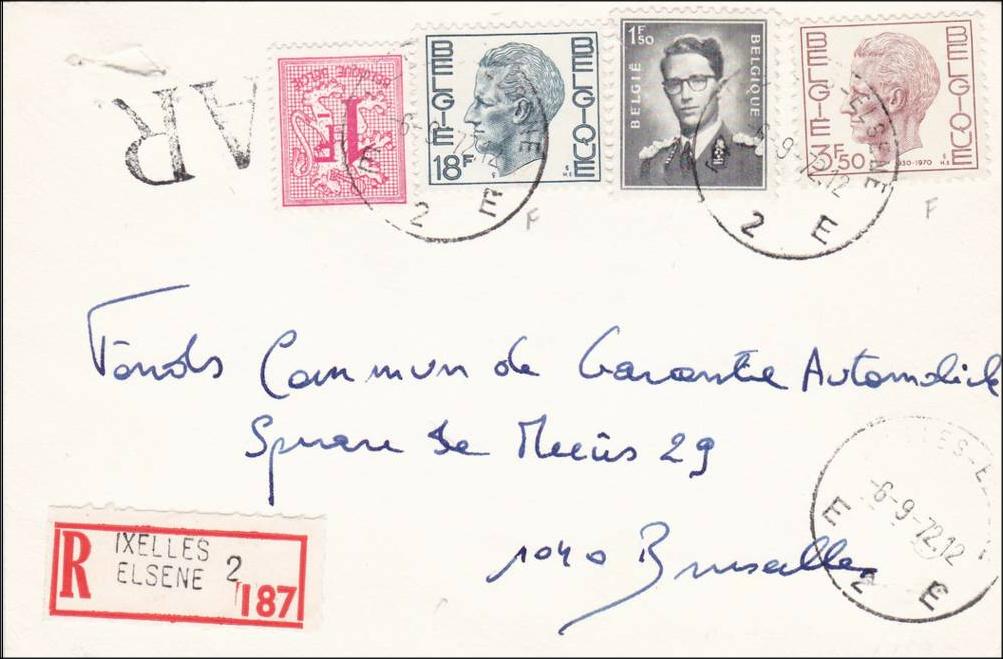 AR
1F
BELGIQUE BELGIË
BELGIE BELGIQUE
18F
1F50
BELGIË BELGIQUE
BELGIE BELGIQUE
3F50
1930-1970
-6-9-72
2 E
ELSENE
-6-9-72.12
2 E
F
F
Fonds Commun de Garantie Automobile
Square de Meeûs 29
1040 Bruxelles
R IXELLES
ELSENE 2
187
-6-9-72.12
E 2 E